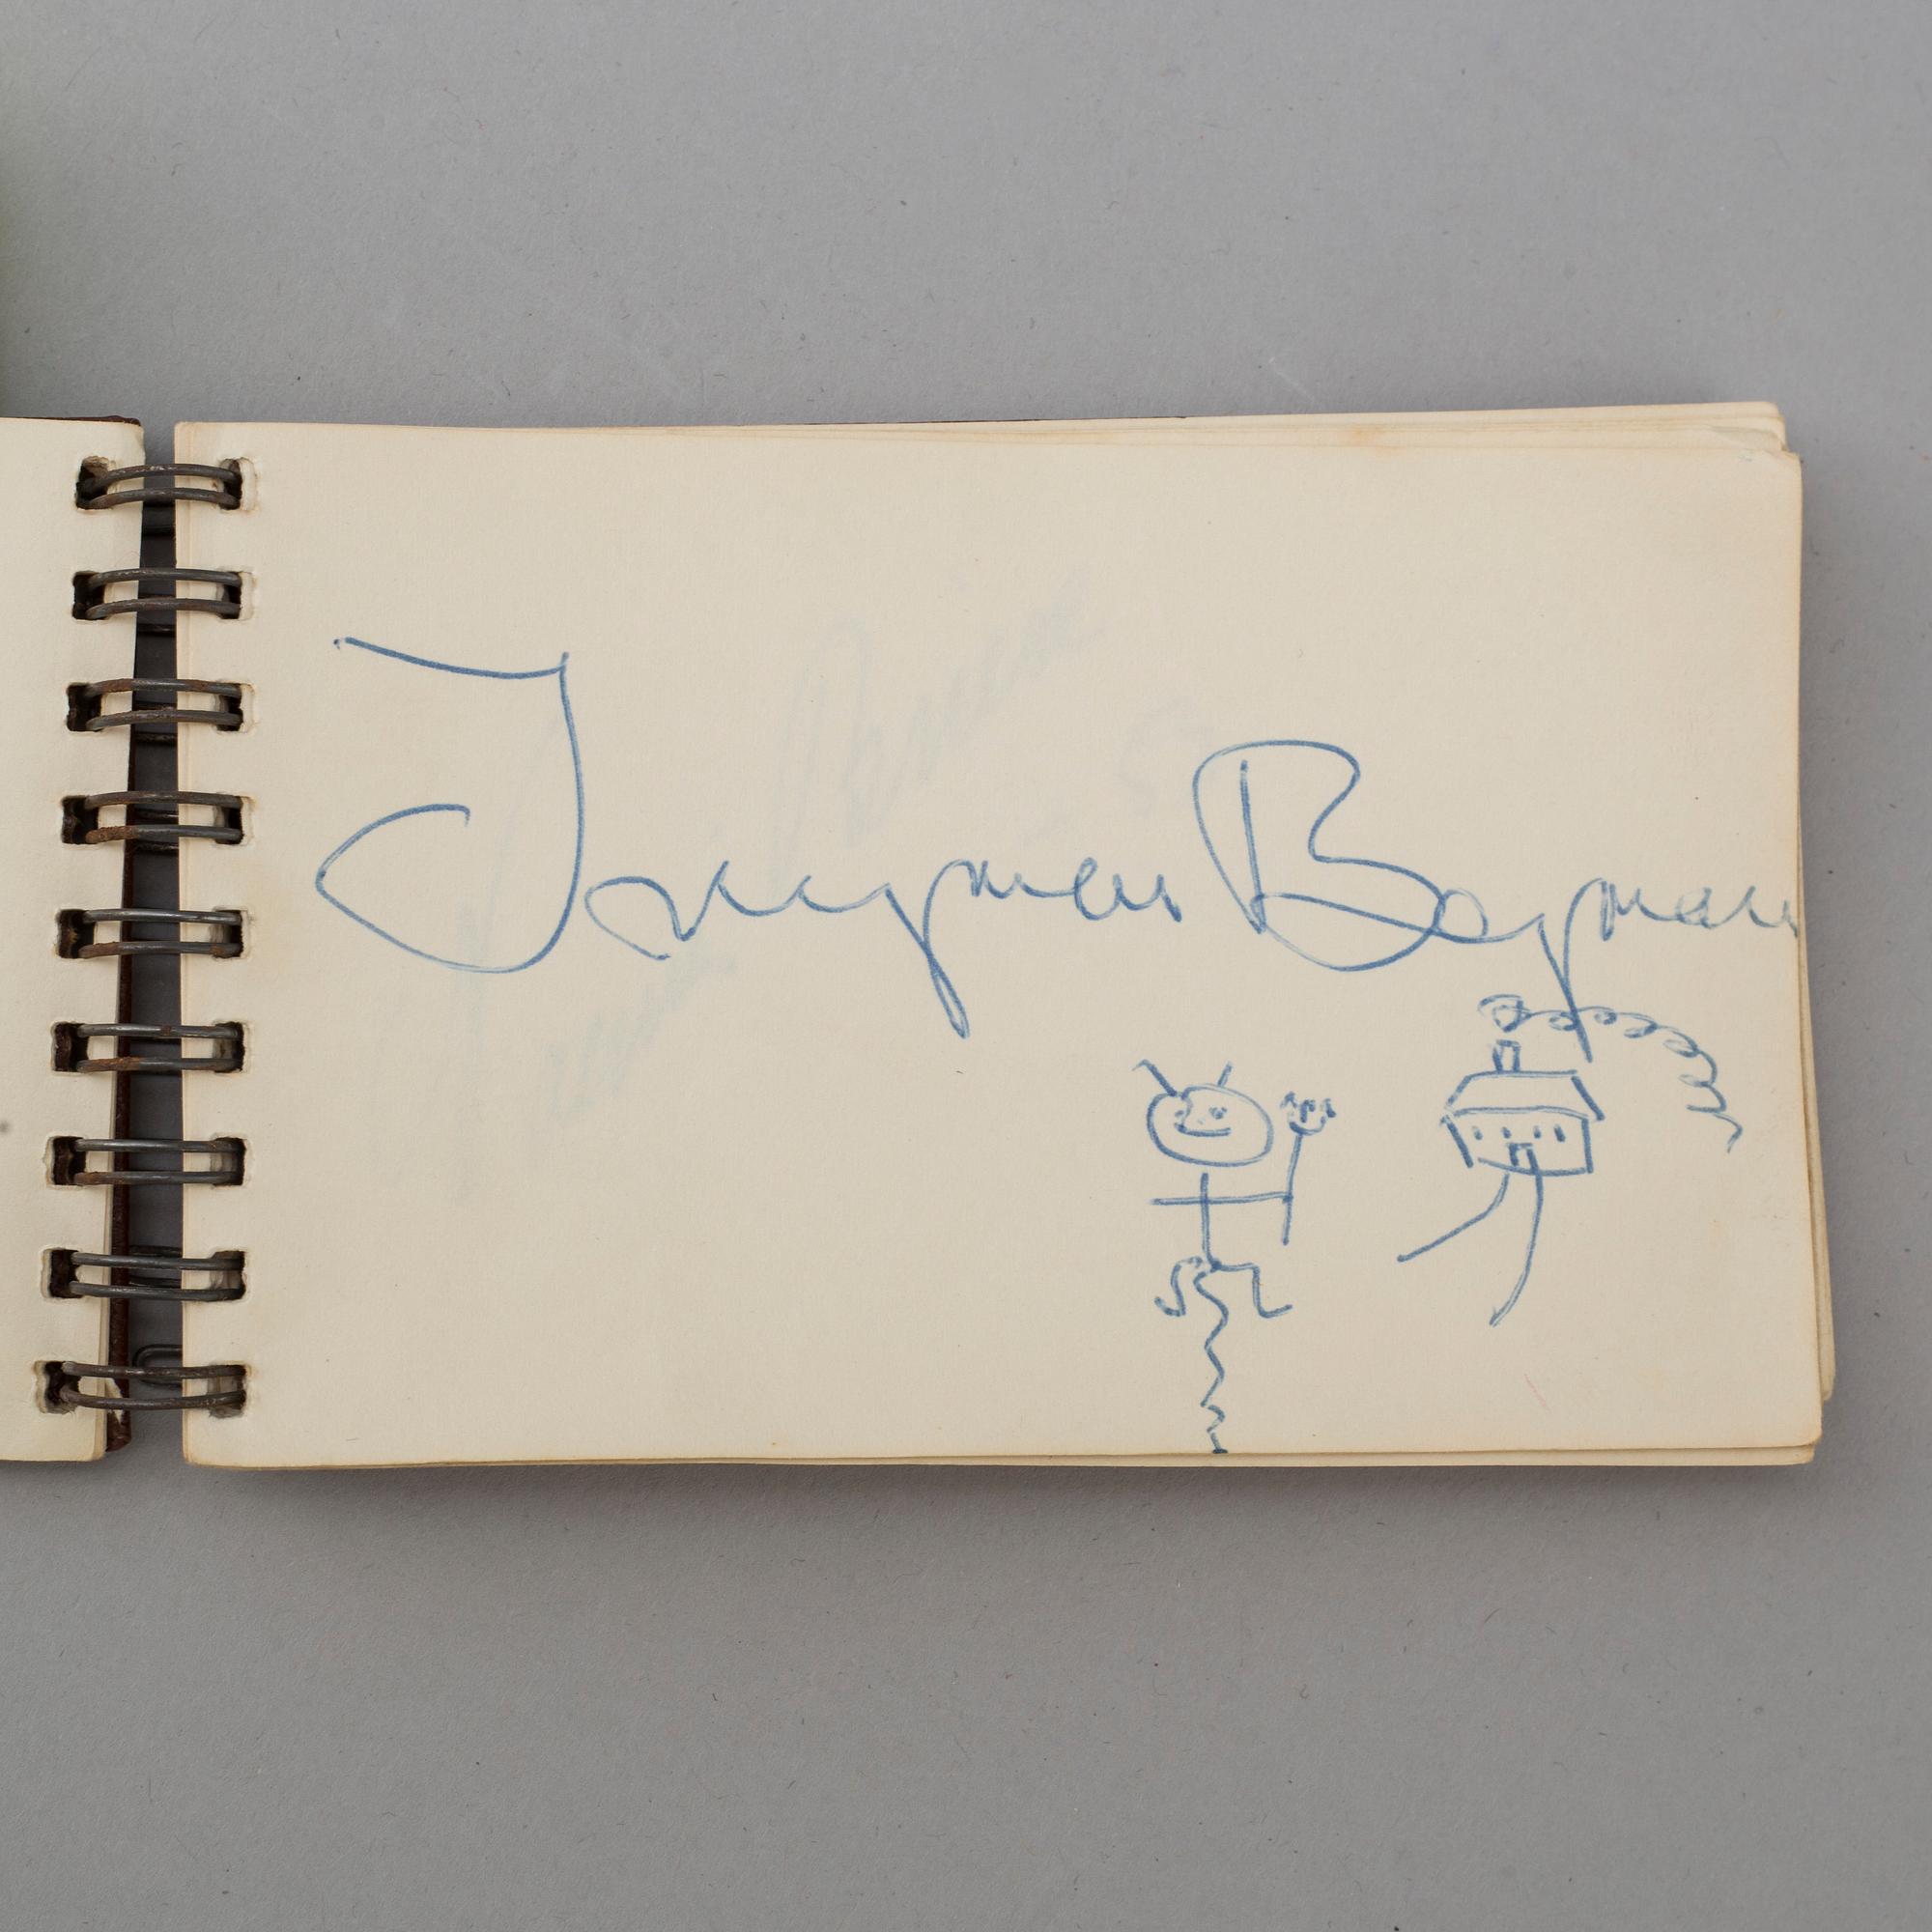 Ingmar Bergman